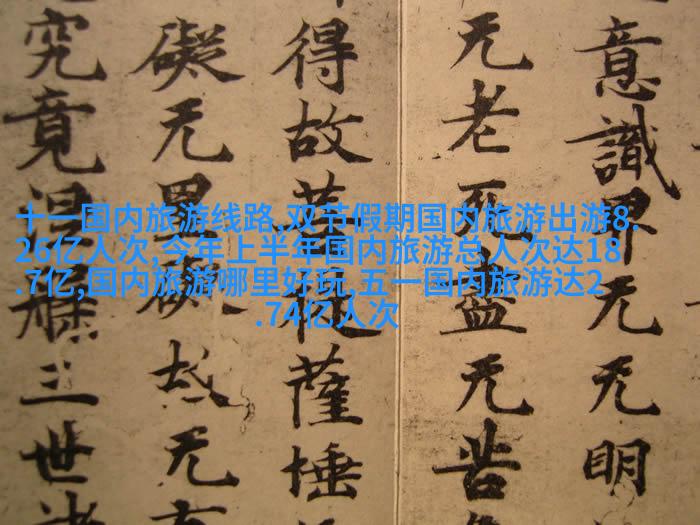 十一国内旅游线路,双节假期国内旅游出游8.
26亿人次,今年上半年国内旅游总人次达18
.7亿,国内旅游哪里好玩,五一国内旅游达2
.74亿人次
意識界无无明
无老死盡无苦
得故菩提薩埵
礙无罣礙故无
究竟涅槃三世諸